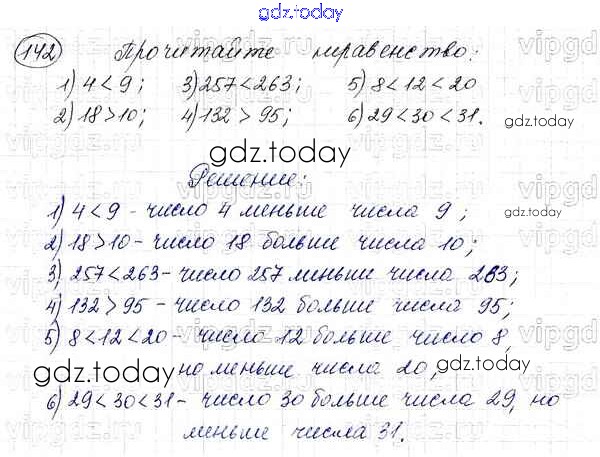 gdz.today
142 Прочитайте неравенство:
1) 4 < 9; 3) 257 < 263; 5) 8 < 12 < 20
2) 18 > 10; 4) 132 > 95; 6) 29 < 30 < 31.
gdz.today
gdz.today
Решение:
1) 4 < 9 - число 4 меньше числа 9;
gdz.today
2) 18 > 10 - число 18 больше числа 10;
3) 257 < 263 - число 257 меньше числа 263;
4) 132 > 95 - число 132 больше числа 95;
5) 8 < 12 < 20 - число 12 больше число 8,
но меньше числа 20,
gdz.today
gdz.today
6) 29 < 30 < 31 - число 30 больше числа 29, но
меньше числа 31.